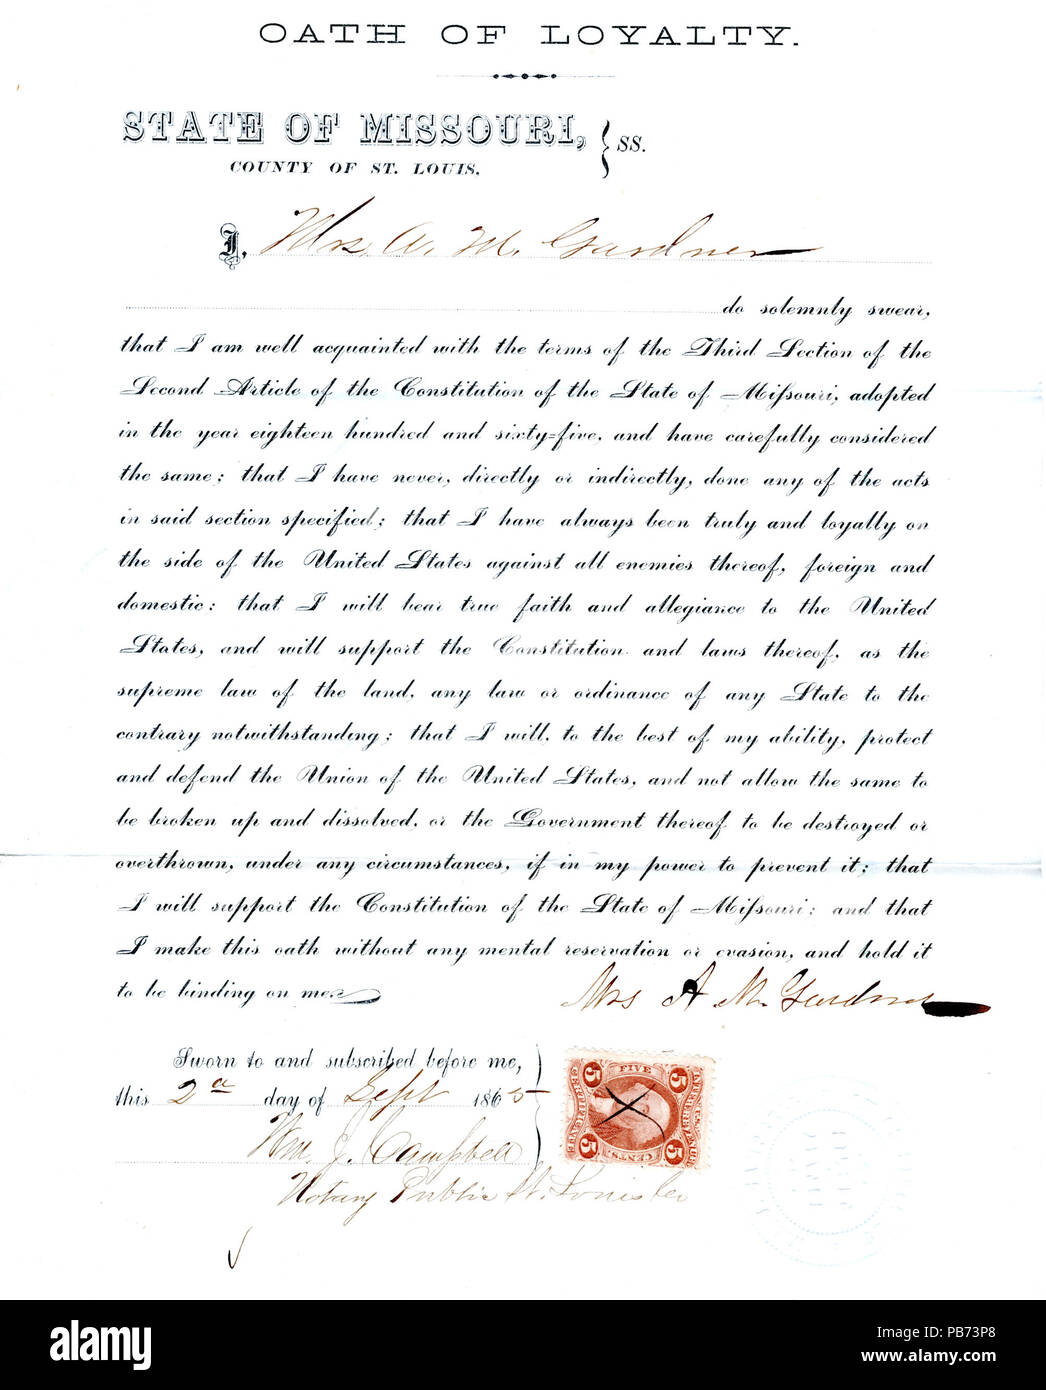 OATH OF LOYALTY.
STATE OF MISSOURI, } SS.
COUNTY OF ST. LOUIS.
I, Mrs. A. M. Gardner
do solemnly swear,
that I am well acquainted with the terms of the Third Section of the
Second Article of the Constitution of the State of Mifsouri, adopted
in the year eighteen hundred and sixty=five, and have carefully considered
the same; that I have never, directly or indirectly, done any of the acts
in said section specified; that I have always been truly and loyally on
the side of the United States against all enemies thereof, foreign and
domestic: that I will bear true faith and allegiance to the United
States, and will support the Constitution and laws thereof, as the
supreme law of the land, any law or ordinance of any State to the
contrary notwithstanding; that I will, to the best of my ability, protect
and defend the Union of the United States, and not allow the same to
be broken up and dissolved, or the Government thereof to be destroyed or
overthrown, under any circumstances, if in my power to prevent it; that
I will support the Constitution of the State of Mifsouri: and that
I make this oath without any mental reservation or evasion, and hold it
to be binding on me.
Mrs A M. Gardner
Sworn to and subscribed before me,
this 2d day of Sept 1865
Wm. J. Campbell
Notary Public St. Louis Co
FIVE
5 5
CERTIFICATE
INTER. REVENUE
5 5
CENTS.
a
alamy
alamy
Image ID: PB73P8
www.alamy.com